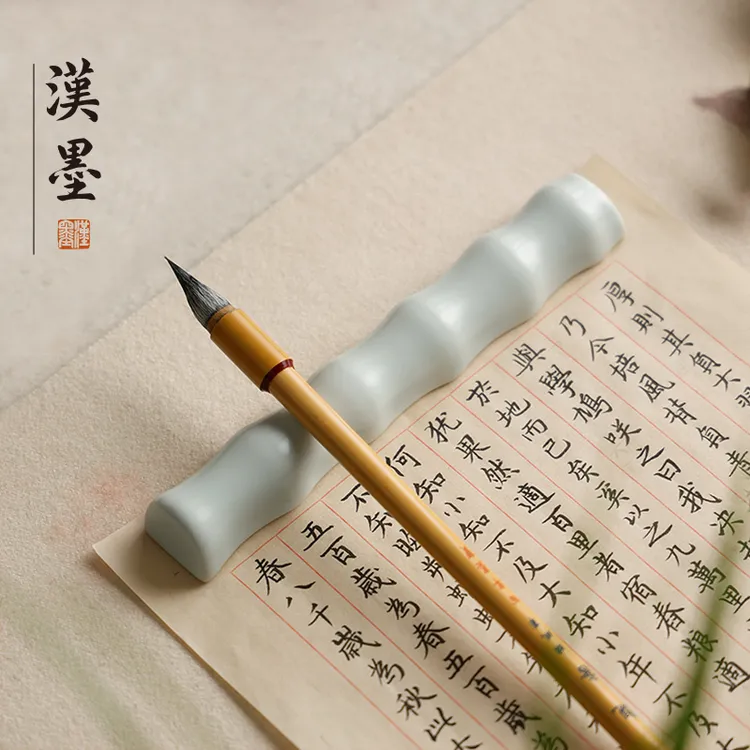 漢墨
漢墨
厚則其負大
乃今培風背負青
與學鳩咲之曰我決
於地而已矣奚以之九萬里
犹果然適百里者宿舂糧適
何知小知不及大知小年不及
不知晦
五百歲為春五百歲為
春八千歲為秋此大